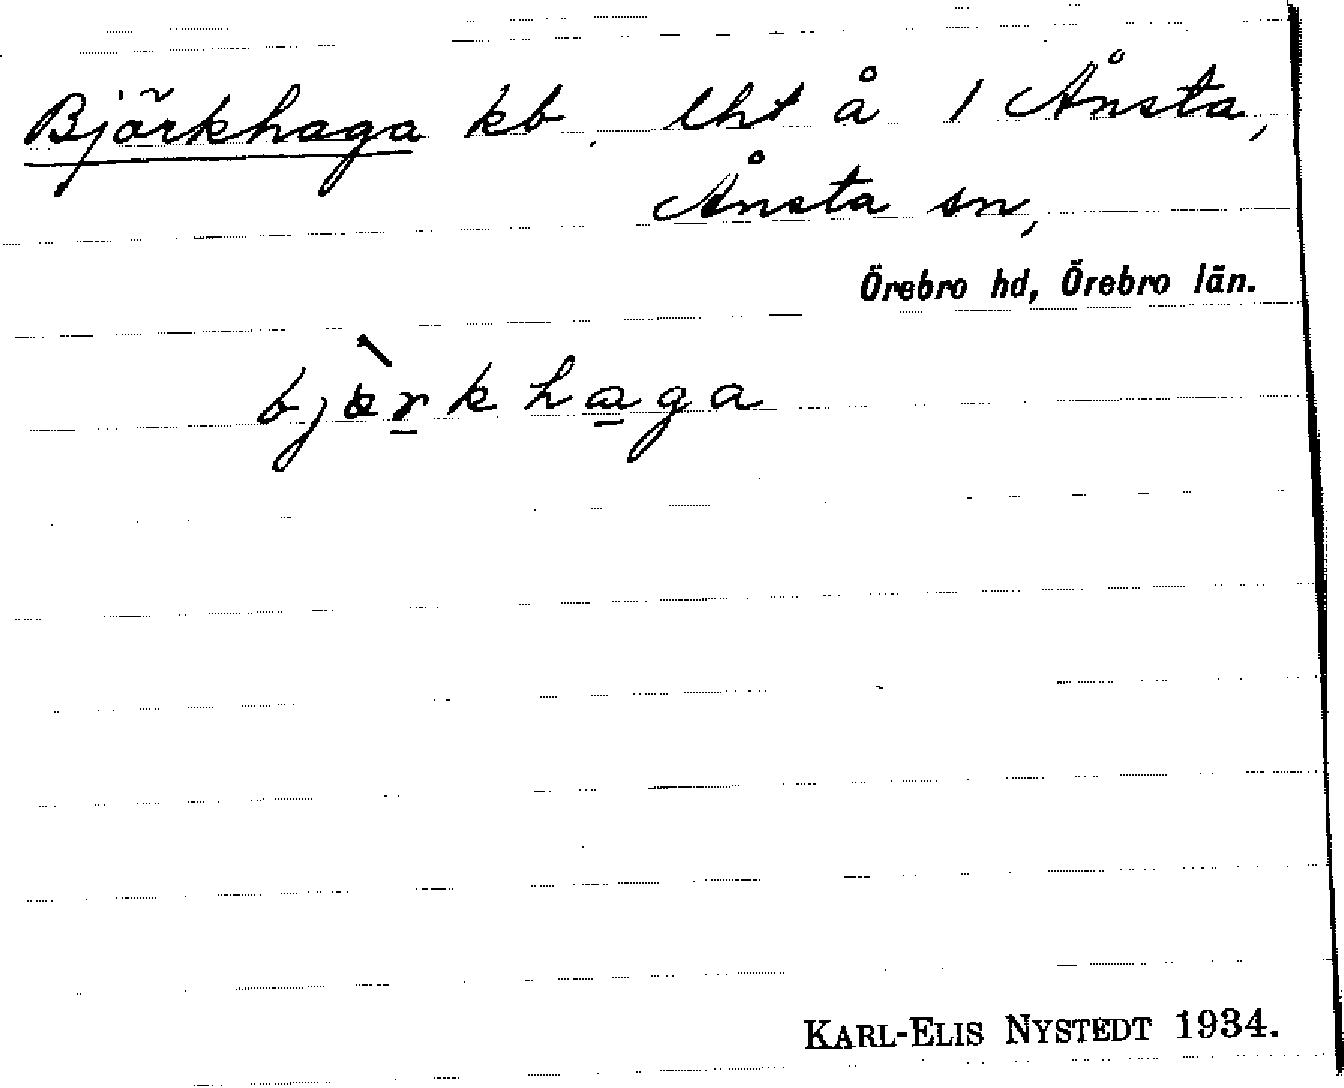 Björkhaga kb. lht å 1 Ånsta,
Ånsta sn,
Örebro hd, Örebro län.
bjè̱rkha̱ga
KARL-ELIS NYSTEDT 1934.